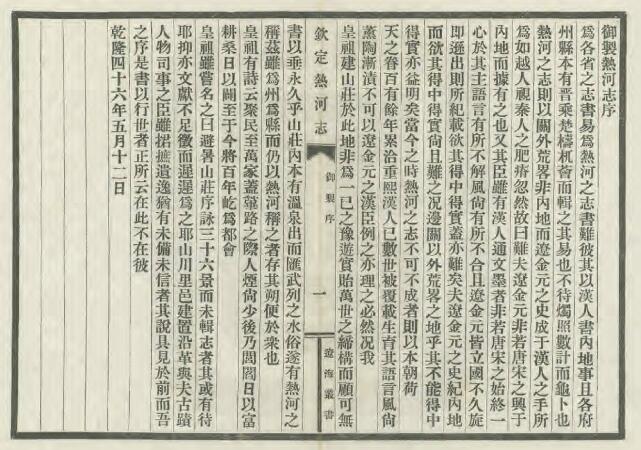 御製熱河志序
為各省之志書易為熱河之志書難彼其以漢人書內地事且各府
州縣本有晉乘楚檮杌薈而輯之其易也不待燭照數計而龜卜也
熱河之志則以關外荒畧非內地而遼金元之史成于漢人之手所
為如越人視秦人之肥瘠忽然故曰難夫遼金元非若唐宋之興于
內地而據有之也又其臣雖有漢人通文墨者非若唐宋之始終一
心於其主語言有所不解風尚有所不合且遼金元皆立國不久旋
即遜出則所紀載欲其得中得實蓋亦難矣夫遼金元之史紀內地
而欲其得中得實尚且難之況邊關以外荒畧之地乎其不能得中
得實亦益明矣當今之時熱河之志不可不成者則以本朝荷
天之眷百有餘年累洽重熙漢人已數世被覆載生育其語言風尚
薰陶漸漬不可以遼金元之漢臣例之亦理之必然況我
皇祖建山莊於此地非為一已之豫遊實貽萬世之締構而顧可無
欽定熱河志
御製序
一
遼海叢書
書以垂永久乎山莊內本有溫泉出而匯武列之水俗遂有熱河之
稱茲雖為州為縣而仍以熱河稱之者存其朔便於衆也
皇祖有詩云聚民至萬家蓋蓽路之際人煙尚少後乃閭閻日以富
耕桑日以闢至于今將百年屹為都會
皇祖雖嘗名之曰避暑山莊序詠三十六景而未輯志者其或有待
耶抑亦文獻不足徵而遲遲為之耶山川里邑建置沿革與夫古蹟
人物司事之臣雖捃摭遺逸猶有未備未信者其說具見於前而吾
之序是書以行世者正所云在此不在彼
乾隆四十六年五月十二日